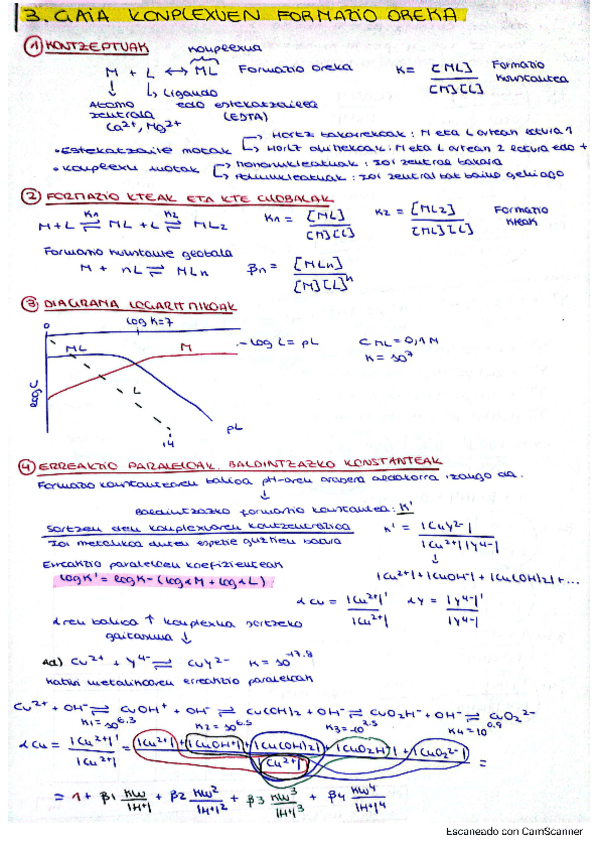 3. GAIA KONPLEXUEN FORMAZIO OREKA
① KONTZEPTUAK
konplexua
M + L ↔ ML Formazio oreka K = [ML] / [M][L] Formazio konstantea
↓ ↳ Ligando
Atomo zentrala edo estekatzailea
Ca²⁺, Mg²⁺ (EDTA)
• Estekatzaile motak → Hortz bakarrekoak: M eta L artean lotura 1
↳ Hortz anitzekoak: M eta L artean 2 lotura edo +
• Konplexu motak → Mononukleatuak: Ioi zentral bakarra
↳ Polinukleatuak: Ioi zentral bat baino gehiago
② FORMAZIO KTEAK ETA KTE GLOBALAK
M + L ⇌ ML + L ⇌ ML₂ K₁ = [ML] / [M][L] K₂ = [ML₂] / [ML][L] Formazio kteak
K₁ K₂
Formazio konstante globala
M + nL ⇌ MLn βn = [MLn] / [M][L]ⁿ
③ DIAGRAMA LOGARITMIKOAK
0 log K=7
ML M -log L = pL C ML = 0,1 M
K = 10⁷
log C L
14 pL
④ ERREAKZIO PARALELOAK. BALDINTZAZKO KONSTANTEAK
Formazio konstantearen balioa pH-aren arabera aldakorra izango da.
↓
Baldintzazko formazio konstantea: K'
Sortzen den konplexuaren kontzentrazioa K' = |CuY²⁻| / |Cu²⁺|'|Y⁴⁻|'
Ioi metalikoa duten espezie guztien batura
↓
Erreakzio paraleloen koefizienteak |Cu²⁺| + |CuOH⁺| + |Cu(OH)₂| + ...
log K' = log K - (log αM + log αL)
αCu = |Cu²⁺|' / |Cu²⁺| αY = |Y⁴⁻|' / |Y⁴⁻|
αren balioa ↑ konplexua sortzeko
gaitasuna ↓
Ad) Cu²⁺ + Y⁴⁻ ⇌ CuY²⁻ K = 10⁻¹⁷·⁸
Katioi metalikoaren erreakzio paraleloak
Cu²⁺ + OH⁻ ⇌ CuOH⁺ + OH⁻ ⇌ Cu(OH)₂ + OH⁻ ⇌ CuO₂H⁻ + OH⁻ ⇌ CuO₂²⁻
K₁ = 10^6.3 K₂ = 10^6.5 K₃ = 10^2.5 K₄ = 10^0.9
αCu = |Cu²⁺|' / |Cu²⁺| = |Cu²⁺| + |CuOH⁺| + |Cu(OH)₂| + |CuO₂H⁻| + |CuO₂²⁻| / |Cu²⁺| =
= 1 + β₁ Kw / |H⁺| + β₂ Kw² / |H⁺|² + β₃ Kw³ / |H⁺|³ + β₄ Kw⁴ / |H⁺|⁴
Escaneado con CamScanner